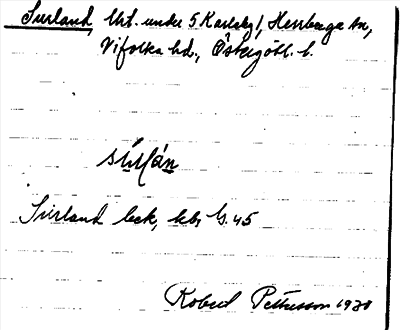 Surland, lht. under 5 Karleby, Herrberga sn,
Vifolka hd., Östergötl. l.
sú̱rlá̱n
Surland beb, hbr G. 45
Robert Pettersson 1930